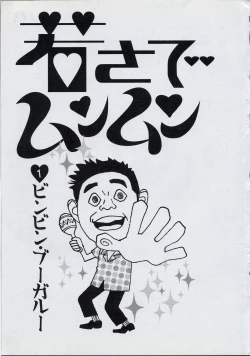 若さで
ムンムン
1
ビンビン・ブーガルー